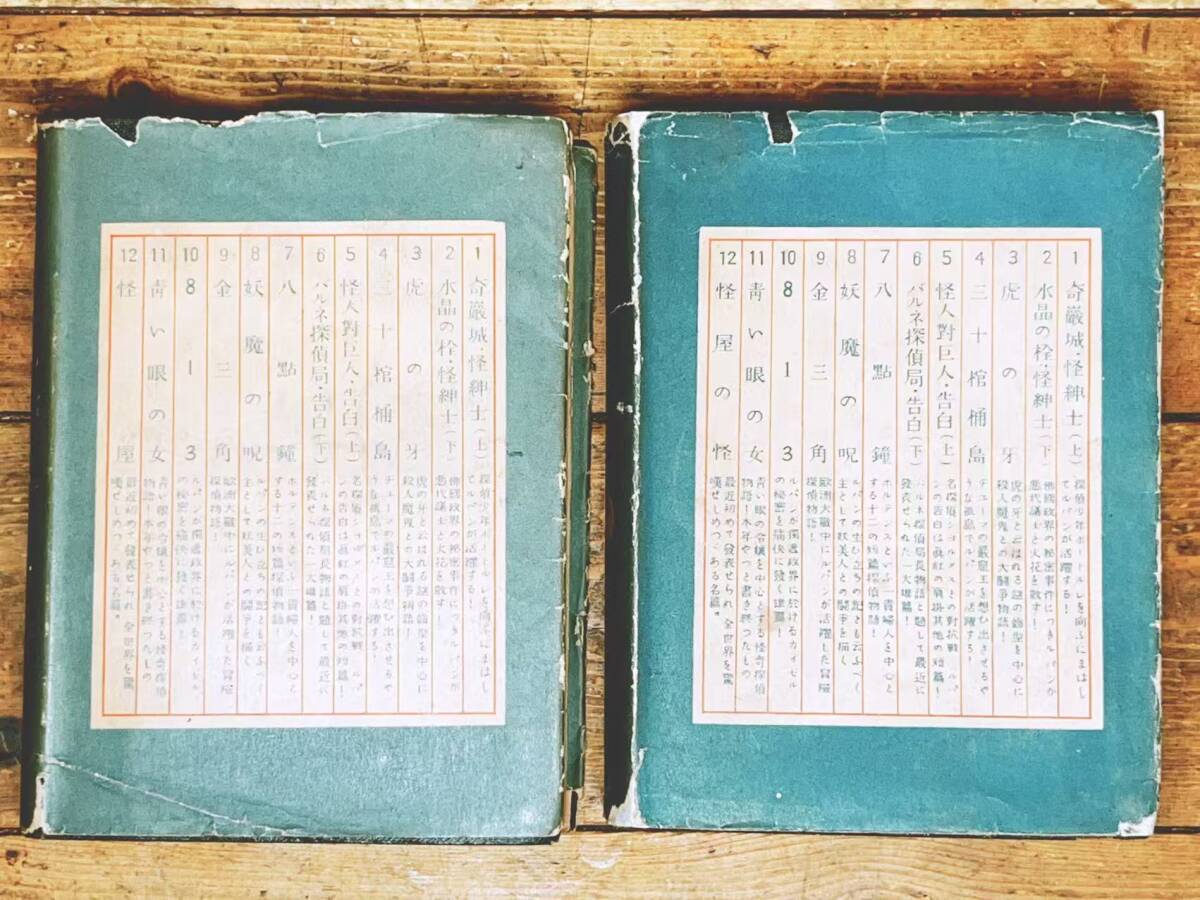 1
奇巖城・怪紳士(上)
探偵少年ボートルレを向ふにまはし
てルパンが活躍する!
2
水晶の栓・怪紳士(下)
佛國政界の秘密事件につきルパンが
悪代議士と火花を散す!
3
虎の牙
虎の牙と云はれる謎の齒型を中心に
殺人魔鬼との大鬪爭物語!
4
三十棺桶島
王を想ひ出させるや
うな孤島でルパンが活躍する!
5
怪人對巨人・告白(上)
名探偵シヨルムスとの對抗戰、ルパ
ンの告白は眞紅の肩掛其他の短篇!
6
バルネ探偵局・告白(下)
バルネ探偵局長物語と題して最近に
發表せられた一大雄篇!
7
八點鐘
ホルテンスといふ一貴婦人を中心と
する十二の短篇探偵物語!
8
妖魔の呪
ルパンの生ひ立ちの記とも云ふべく
主として妖美人との鬪爭を描く
9
金三角
歐洲大戰中にルパンが活躍した冒險
探偵物語!
10
813
ルパンが獨逸政界に於けるカイゼル
の秘密を痛快に發く雄篇!
11
靑い眼の女
靑い眼の令孃を中心とする怪奇探偵
物語!本年やつと書き終つたもの
12
怪屋
最近初めて發表せられ全世界を驚
嘆せしめつゝある名篇。
1
奇巖城・怪紳士(上)
探偵少年ボートルレを向ふにまはし
てルパンが活躍する!
2
水晶の栓・怪紳士(下)
佛國政界の秘密事件につきルパンが
悪代議士と火花を散す!
3
虎の牙
虎の牙と云はれる謎の齒型を中心に
殺人魔鬼との大鬪爭物語!
4
三十棺桶島
王を想ひ出させるや
うな孤島でルパンが活躍する!
5
怪人對巨人・告白(上)
名探偵シヨルムスとの對抗戰、ルパ
ンの告白は眞紅の肩掛其他の短篇!
6
バルネ探偵局・告白(下)
バルネ探偵局長物語と題して最近に
發表せられた一大雄篇!
7
八點鐘
ホルテンスといふ一貴婦人を中心と
する十二の短篇探偵物語!
8
妖魔の呪
ルパンの生ひ立ちの記とも云ふべく
主として妖美人との鬪爭を描く
9
金三角
歐洲大戰中にルパンが活躍した冒險
探偵物語!
10
813
ルパンが獨逸政界に於けるカイゼル
の秘密を痛快に發く雄篇!
11
靑い眼の女
靑い眼の令孃を中心とする怪奇探偵
物語!本年やつと書き終つたもの
12
怪屋の怪
最近初めて發表せられ全世界を驚
嘆せしめつゝある名篇。